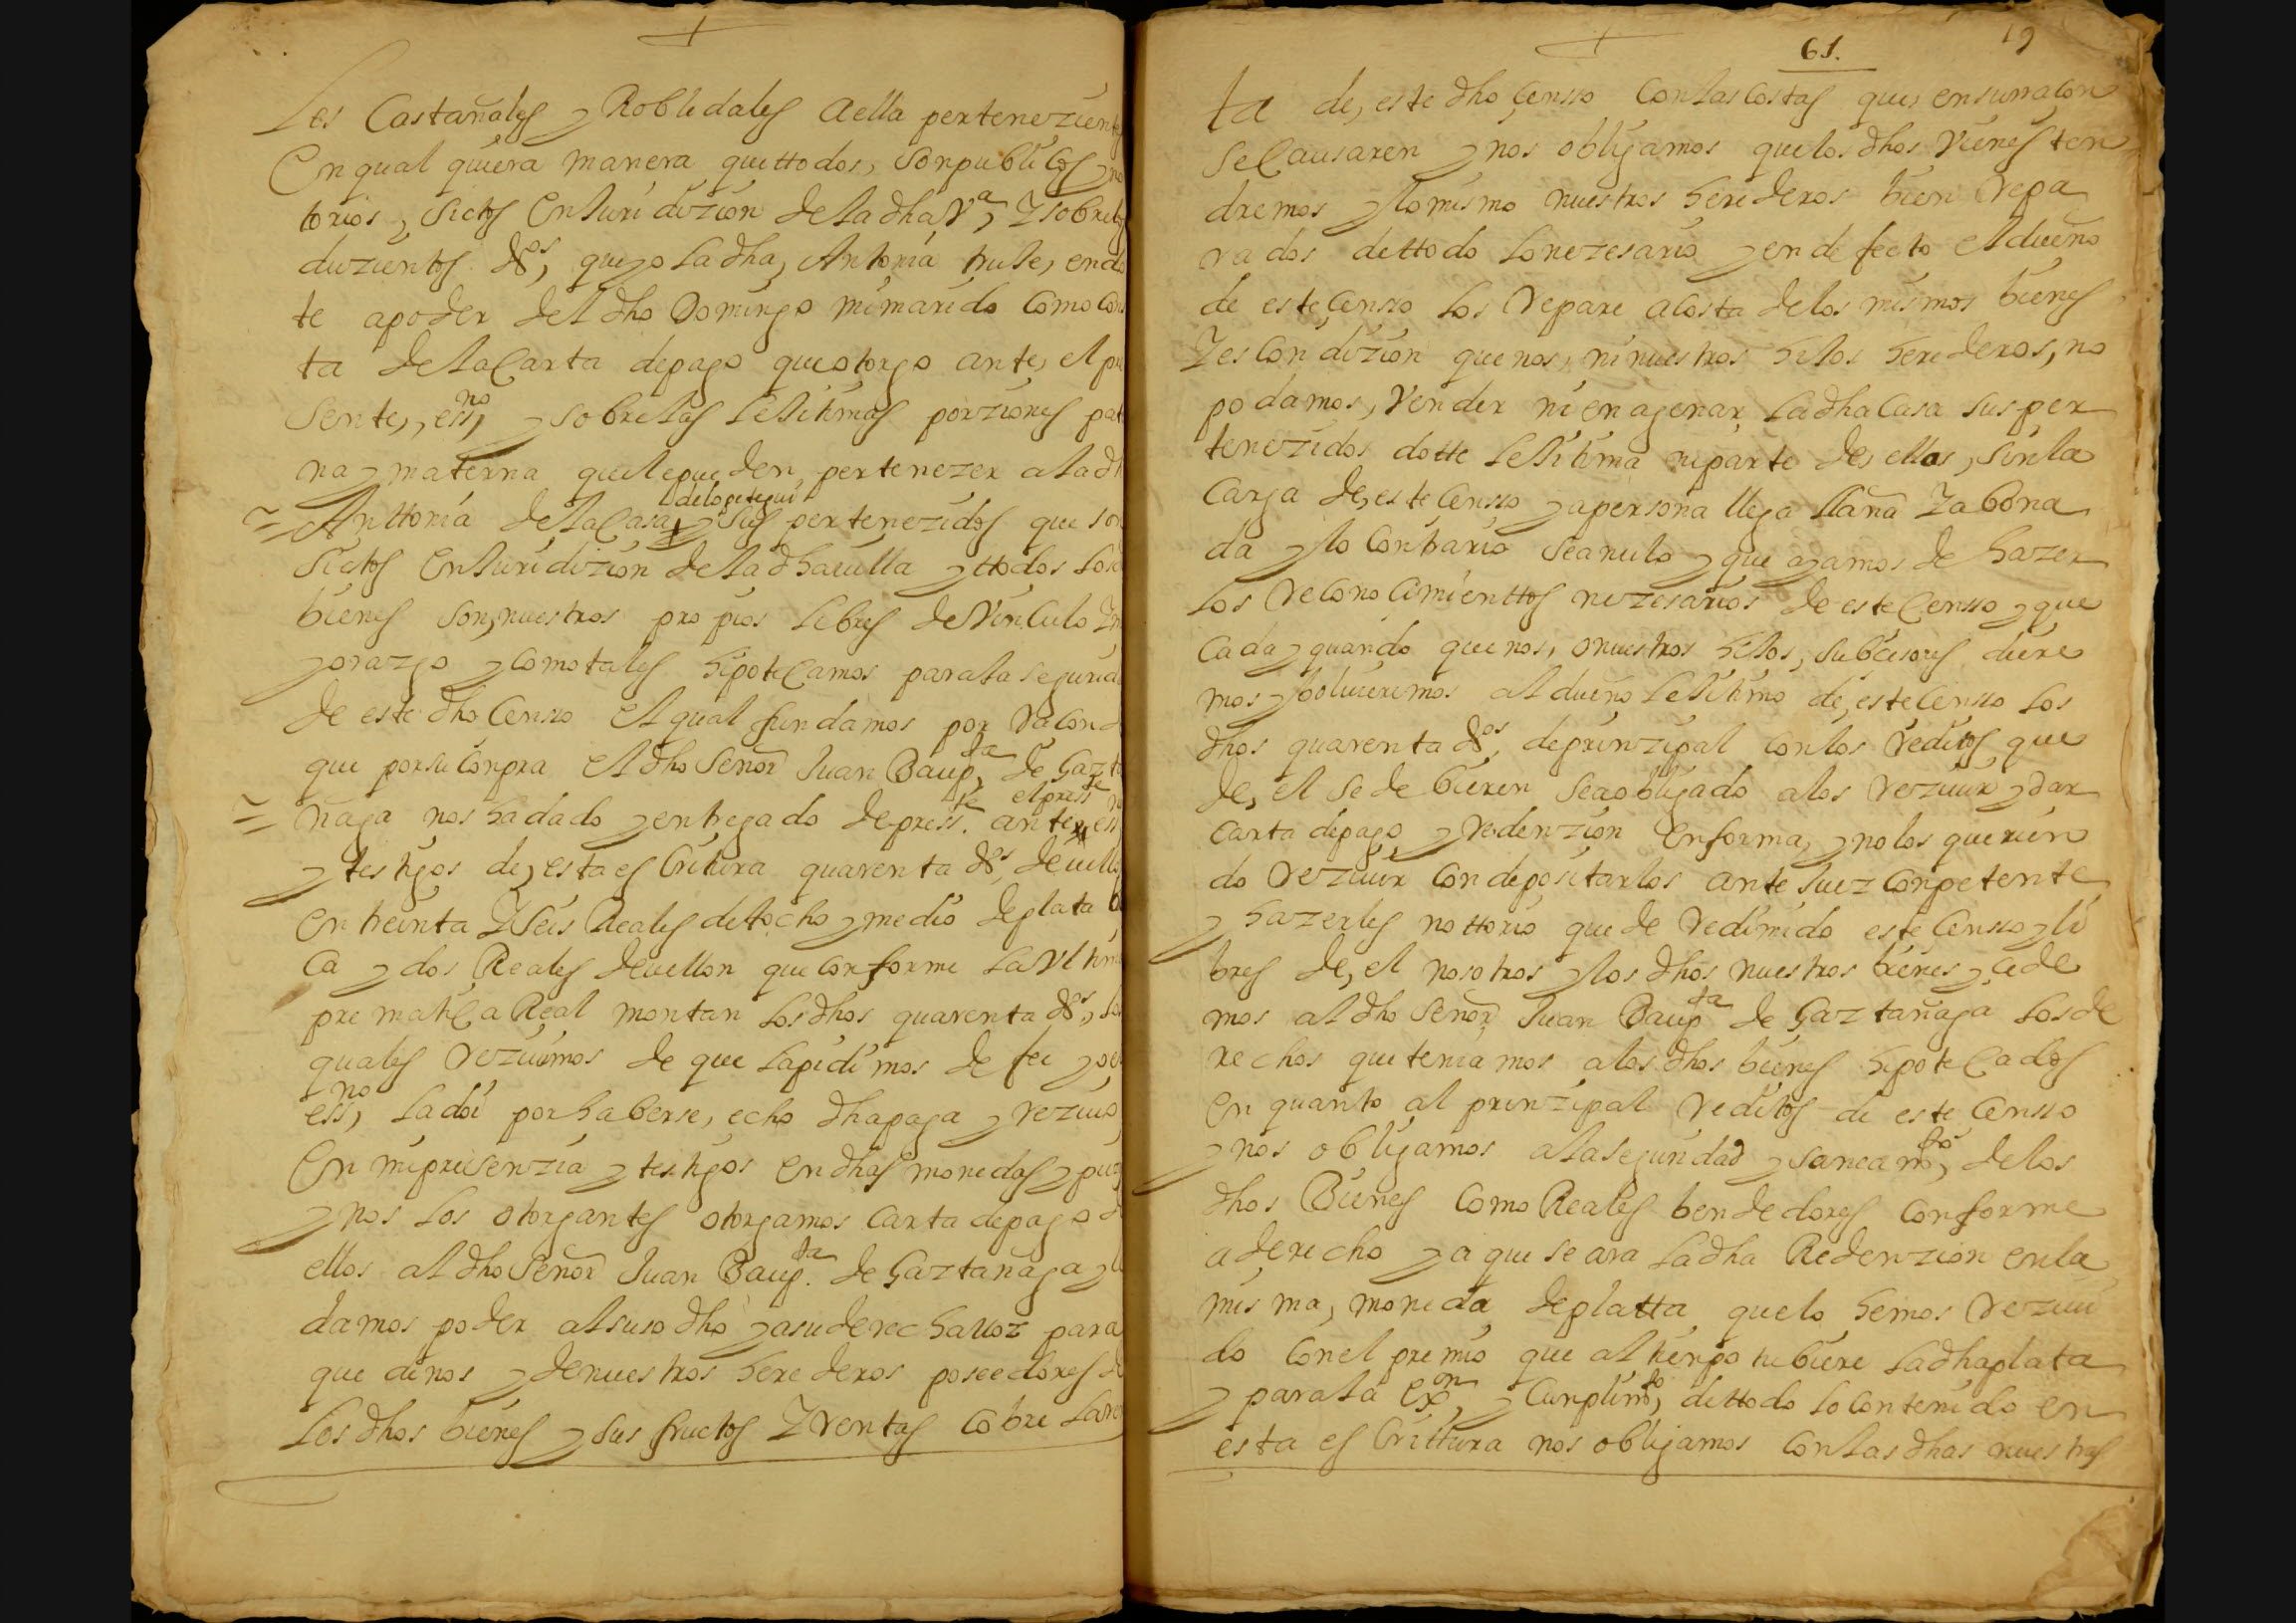 les Castañales y Robledales a ella perteneziente
En qual quiera manera que ttodos, son publicos y no
torios, sictos En Juridizion de la dha Vª, Y sobre los
duzientos ds, que yo la dha, Antonia truse, en do
te a poder del dho Domingo mi marido como cons
ta de la Carta de pago que otorgo ante, el pre
sente, essno, y sobre las lexitimas porziones pat
na y materna que le pueden pertenezer a la dh
Anttonia de la Casa de lopetegui y sus pertenezidos que son
Sictos En Juridizion de la dha uilla y ttodos los
bienes son, nuestros propios lebres de Vinculo Y m
yorazgo y como tales hipotecamos para la segurid
de este dho Censso El qual fundamos por racon d
que por su Conpra El dho Señor Juan Bauptª de Gazta
ñaga nos ha dado y entregado de presste ante el presste ess
y testigos de, esta esCritura quarenta ds, de uello
En treinta Y seis Reales de lo ocho y medio de plata
Ca y dos Reales de uellon que conforme la Vltim
prematica Real montan los dhos quarenta ds, los
quales rezuimos de que la pidimos de fee y o el
essno, la doi por haberse, echo dha paga y rezuio
En mi pressenzia y testigos En dhas monedas y pu
y nos los otorgantes otorgamos Carta de pago d
ellos al dho Señor Juan Bauptª de Gaztañaga y l
damos poder al suso dho y a su derecha uoz para
que de nos y de nuestros herederos poseedores d
los dhos bienes y sus fructos Y rentas cobre la ren
61. 19
ta de, este dho Censso Con las Costas que, en su racon
se Causaren y nos obligamos que los dhos Vienes ten
dremos y lo mismo nuestros herederos bien repa
rados de ttodo lo nezesario y en defecto el dueño
de este Censso los repare a costa de los mismos bienes
Y es Condizion que nos, ni nuestros hijos herederos, no
podamos, Vender ni enagenar la dha Casa sus per
tenezidos dotte lexitima ni parte de, ellos, sin la
Carga de, este Censso y a persona llega llana Y abona
da y lo Contrario sea nulo y que ayamos de hazer
los reconocimienttos nezesarios de este Censso y que
Cada y quando que nos, o nuestros hijos, subcesores diere
mos y bolvieremos al dueño lexitimo de, este Censso los
dhos quarenta ds, de prinzipal con los reditos que
de, el se debieren sea obligado a los rezuir y dar
Carta de pago, y redenzion En forma, y no los querien
do rezuir con depositarlos ante Juez Conpetente
y hazerles nottorio quede redimido este Censso y li
bres de, el nosotros y los dhos nuestros bienes y cede
mos al dho Señor Juan Bauptª de Gaztañaga los de
rechos que teniamos a los dhos bienes hipotecados
En quanto al prinzipal reditos de este Censso
y nos obligamos a la seguridad y saneamto, de los
dhos Bienes Como Reales bendedores Conforme
a derecho y a que se ara la dha Redenzion en la
misma, moneda de platta que lo hemos rezuui
do Con el premio que al tienpo tubiere la dha plata
y para la exon, y Cunplimto, de ttodo lo Contenido en
esta esCrittura nos obligamos Con las dhas nuestras